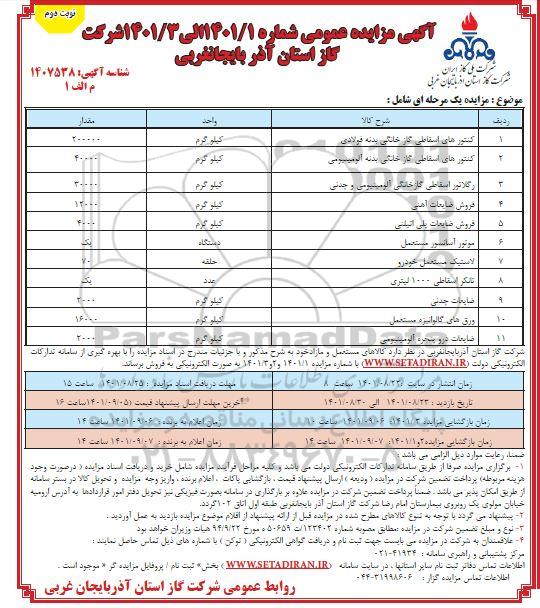 نوبت دوم
آگهی مزایده عمومی شماره ۱۴۰۱/۱الی۱۴۰۱/۳شرکت
گاز استان آذر بایجانغربی
شرکت ملی گاز ایران
شرکت گاز استان آذربایجان غربی
شناسه آگهی: ۱۴۰۷۵۳۸
م الف ۱
موضوع : مزایده یک مرحله ای شامل :
ردیف شرح کالا واحد مقدار
۱ کنتور های اسقاطی گاز خانگی بدنه فولادی کیلو گرم ۲۰۰۰۰۰
۲ کنتور های اسقاطی گاز خانگی بدنه آلومینیومی کیلو گرم ۴۰۰۰۰
۳ رگلاتور اسقاطی گازخانگی آلومینیومی و چدنی کیلو گرم ۳۰۰۰۰
۴ فروش ضایعات آهنی کیلو گرم ۱۲۰۰۰
۵ فروش ضایعات پلی اتیلنی کیلو گرم ۴۰۰۰
۶ موتور آسانسور مستعمل دستگاه یک
۷ لاستیک مستعمل خودرو حلقه ۷۰
۸ تانکر اسقاطی ۱۰۰۰ لیتری عدد یک
۹ ضایعات چدنی کیلو گرم ۲۰۰۰
۱۰ ورق های گالوانیزه مستعمل کیلو گرم ۱۶۰۰۰
۱۱ ضایعات درو پنجره آلومینیومی کیلو گرم ۲۰۰۰
شرکت گاز استان آذربایجانغربی در نظر دارد کالاهای مستعمل و مازادخود به شرح مذکور و با جزئیات مندرج در اسناد مزایده را با بهره گیری از سامانه تدارکات
الکترونیکی دولت (WWW.SETADIRAN.IR) با شماره مزایده ۱۴۰۱/۱ و ۲و۱۴۰۱/۳ به صورت الکترونیکی به فروش برساند.
زمان انتشار در سایت :۱۴۰۱/۰۸/۲۲ ساعت ۸ مهلت دریافت اسناد مزایده : ۱۴۰۱/۰۸/۲۵ ساعت ۱۵
تاریخ بازدید : ۱۴۰۱/۰۸/۲۳ الی ۱۴۰۱/۰۸/۳۰ آخرین مهلت ارسال پیشنهاد قیمت :۱۴۰۱/۰۹/۰۵ ساعت ۱۶
زمان بازگشایی مزایده ۱۴۰۱/۳: ۱۴۰۱/۰۹/۰۶ ساعت ۱۰ زمان اعلام به برنده : ۱۴۰۱/۰۹/۰۶ ساعت ۱۴
زمان بازگشایی مزایده۲و۱۴۰۱/۱: ۱۴۰۱/۰۹/۰۷ ساعت ۱۴ زمان اعلام به برنده : ۱۴۰۱/۰۹/۰۷ ساعت ۱۴
ضمنا، رعایت موارد ذیل الزامی می باشد :
۱- برگزاری مزایده صرفا از طریق سامانه تدارکات الکترونیکی دولت می باشد و کلیه مراحل فرآیند مزایده شامل خرید و دریافت اسناد مزایده ( درصورت وجود
هزینه مربوطه) پرداخت تضمین شرکت در مزایده ( ودیعه ) ارسال پیشنهاد قیمت ، بازگشایی پاکات ، اعلام برنده ، واریز وجه مزایده و تحویل کالا در بستر سامانه
از طریق امکان پذیر می باشد . ضمناً پرداخت تضمین شرکت در مزایده علاوه بر بارگذاری در سامانه بصورت فیزیکی نیز تحویل دفتر امور قراردادها به آدرس ارومیه
خیابان مولوی یک روبروی بیمارستان امام رضا شرکت گاز استان آذر بایجانغربی طبقه اول اتاق ۱۰۲گردد.
۲- پیشنهاد می گردد با توجه به تنوع کالاهای مطرح شده در مزایده قبل از ارائه پیشنهاد از اقلام موضوع مزایده بازدید به عمل آوردید .
۳- نوع و مبلغ تضمین شرکت در مزایده :مطابق مصوبه شماره ۱۲۳۴۰۲/ت۵۰۶۵۹ ه مورخ ۹۴/۹/۲۲ هیات وزیران خواهد بود
۴- علاقمندان به شرکت در مزایده می بایست جهت ثبت نام و دریافت گواهی الکترونیکی ( توکن ) با شماره های ذیل تماس حاصل نمایند :
مرکز پشتیبانی و راهبری سامانه : ۰۲۱-۴۱۹۳۴
اطلاعات تماس دفاتر ثبت نام سایر استانها ، در سایت سامانه (WWW.SETADIRAN.IR) بخش» ثبت نام / پروفایل مزایده گر » موجود است .
اطلاعات تماس مزایده گزار : ۰۴۴-۳۱۹۹۸۶۰۶
روابط عمومی شرکت گاز استان آذربایجان غربی
ParsNamadData
پایگاه اطلاع رسانی مناقصه و مزایده
۰۲۱-۸۸۳۴۹۶۷۰-۵